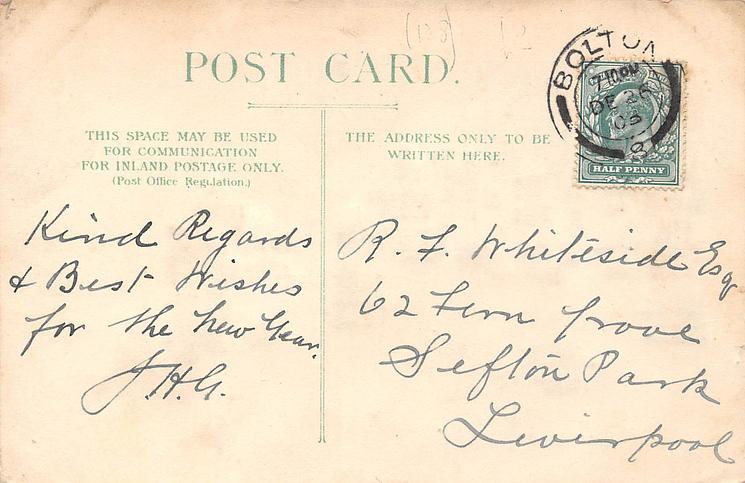 (138)
POST CARD.
THIS SPACE MAY BE USED
FOR COMMUNICATION
FOR INLAND POSTAGE ONLY.
(Post Office Regulation.)
THE ADDRESS ONLY TO BE
WRITTEN HERE.
BOLTON
7-10 PM
DE 26
03
8
HALF PENNY
Kind Regards
& Best Wishes
for the New Year.
J.H.G.
R. F. Whiteside Esq
62 Fern Grove
Sefton Park
Liverpool